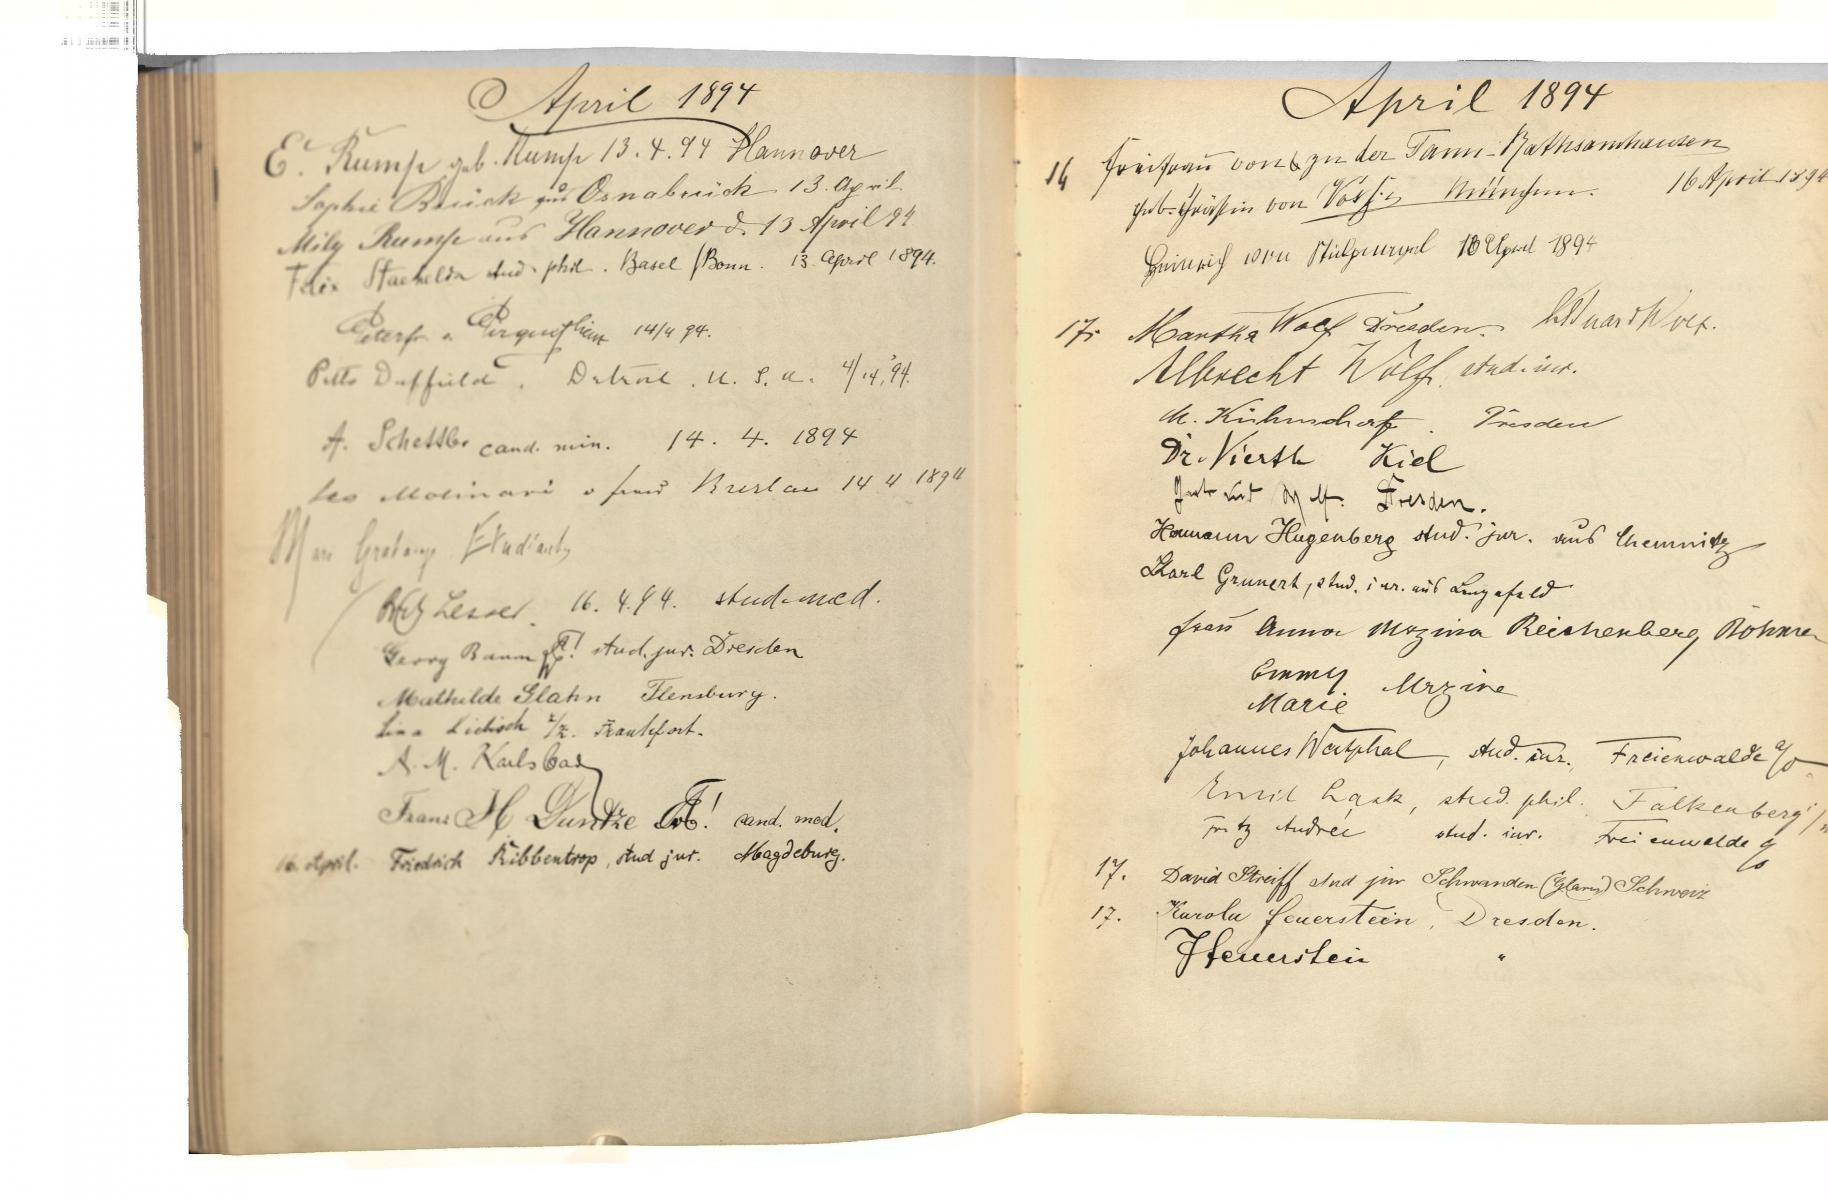 April 1894
E. Rump geb. Rump 13.4.94 Hannover
Sophie Brück aus Osnabrück 13. April
Mily Rump aus Hannover d. 13 April 94
Felix Staehelin stud. phil. Basel / Bonn. 13. April 1894.
14/4 94.
Pitts Duffield, Detroit. U. S. A. 4/14, '94.
A. Schettler cand. min. 14. 4. 1894
Leo Molinari u Frau Breslau 14 4 1894
Marc Etudiant
Lesser. 16. 4. 94. stud. med.
Georg Baum stud. jur. Dresden
Mathilde Glahn Flensburg.
Lina Liebisch z/z. Frankfort.
A. M. Karlsbad
Franz H. Duntze cand. med.
16. April. Friedrich Ribbentrop, stud jur. Magdeburg.
April 1894
16 Freifrau von & zu der Tann-Rathsamhausen
geb. Gräfin von Voss, München. 16 April 1894
Heinrich von Stülpnagel 16 April 1894
17. Martha Wolf Dresden. Eduard Wolf.
Albrecht Wolf, stud. iur.
M. Kühnscherf. Dresden
Dr. Vierth Kiel
Dresden.
Hermann Hugenberg stud. jur. aus Chemnitz
Karl Grunert, stud. iur. aus Lengefeld
Frau Anna Mrzina Reichenberg Böhmen
Emmy
Marie Mrzina
Johannes Westphal, stud. iur., Freienwalde a/O
Emil Lask, stud. phil. Falkenberg /M
Fritz Andrée stud. iur. Freienwalde a/O
17. David Streiff stud jur Schwanden (Glarus) Schweiz
17. Karola Feuerstein, Dresden.
J Feuerstein "